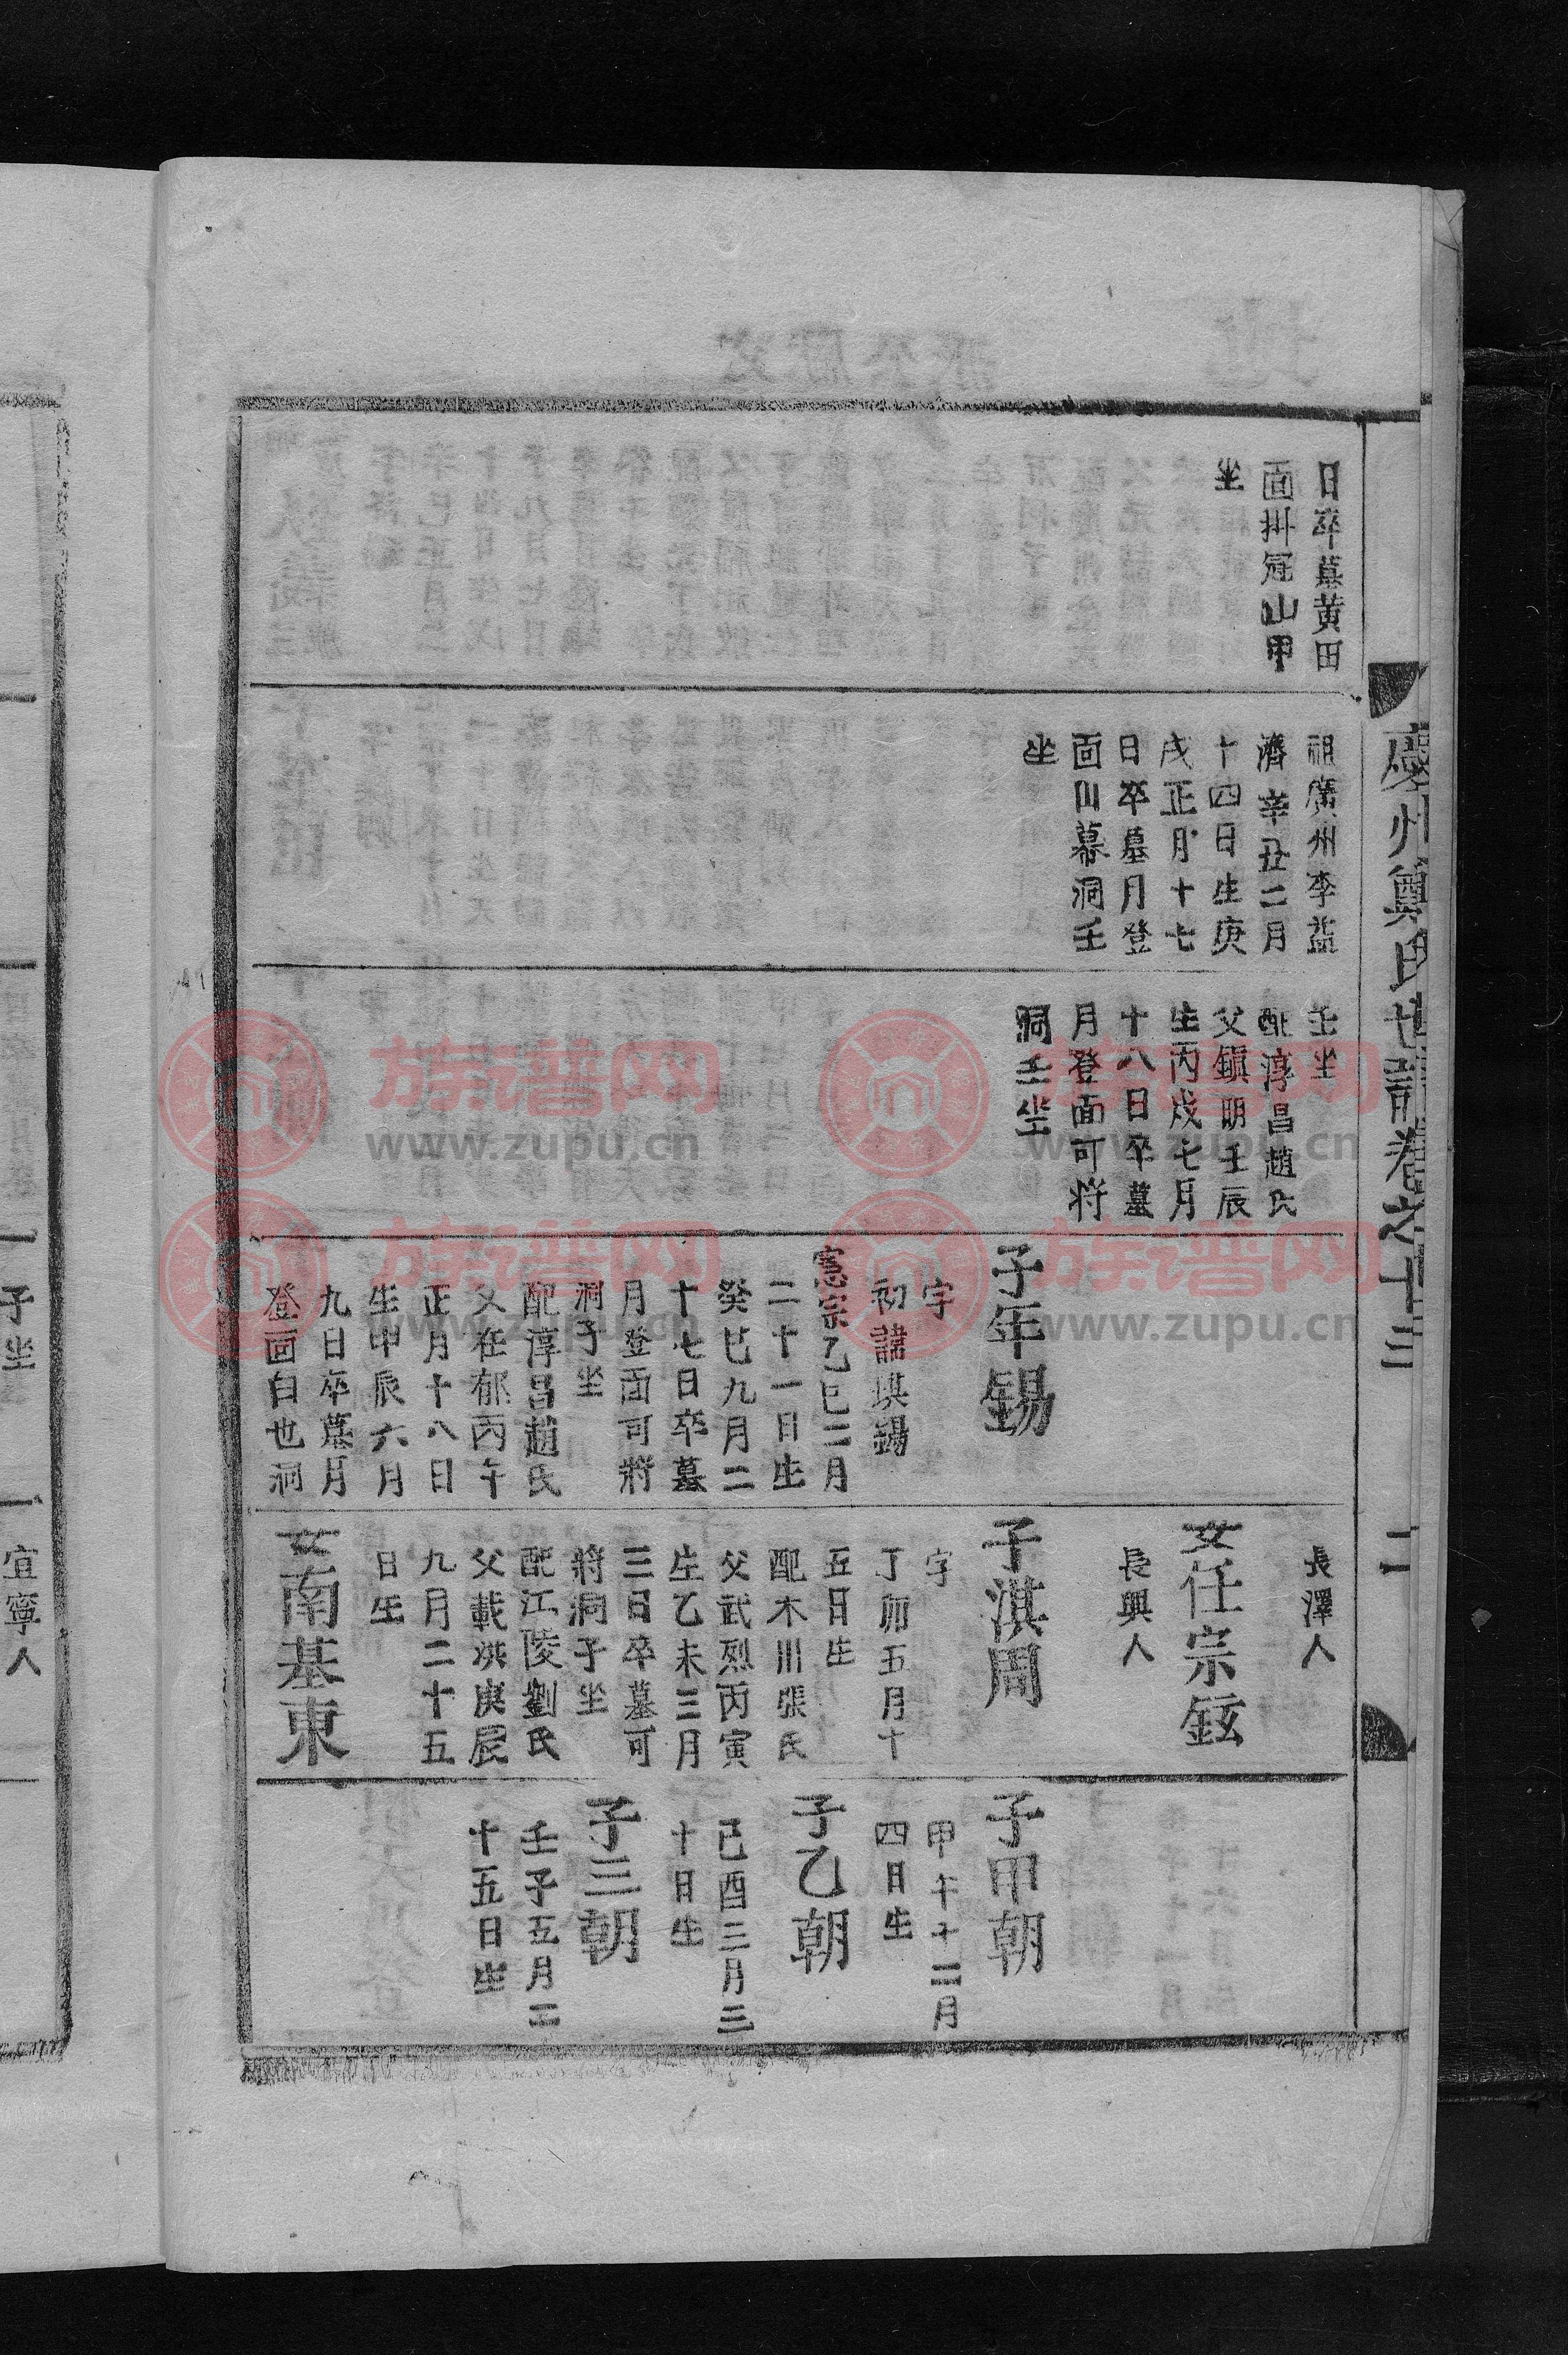 慶州鄭氏世譜卷之十三
二
日卒墓黄田
面掛冠山甲
坐
祖廣州李益
濟辛丑二月
十四日生庚
戌正月十七
日卒墓月登
面川幕洞壬
坐
壬坐
配淳昌趙氏
父鎭明壬辰
生丙戌七月
十八日卒墓
月登面可將
洞壬坐
子年錫
字
初諱堪錫
憲宗乙巳二月
二十一日生
癸巳九月二
十七日卒墓
月登面可將
洞子坐
配淳昌趙氏
父在郁丙午
正月十八日
生甲辰六月
九日卒墓月
登面白也洞
長澤人
女任宗鉉
長興人
子淇周
字
丁卯五月十
五日生
配木川張氏
父武烈丙寅
生乙未三月
三日卒墓可
將洞子坐
配江陵劉氏
父載洪庚辰
九月二十五
日生
女南基東
子甲朝
甲午十二月
四日生
子乙朝
己酉三月三
十日生
子三朝
壬子五月二
十五日生
子坐
宜寧人
族谱网
www.zupu.cn
族谱网
www.zupu.cn
族谱网
www.zupu.cn
族谱网
www.zupu.cn